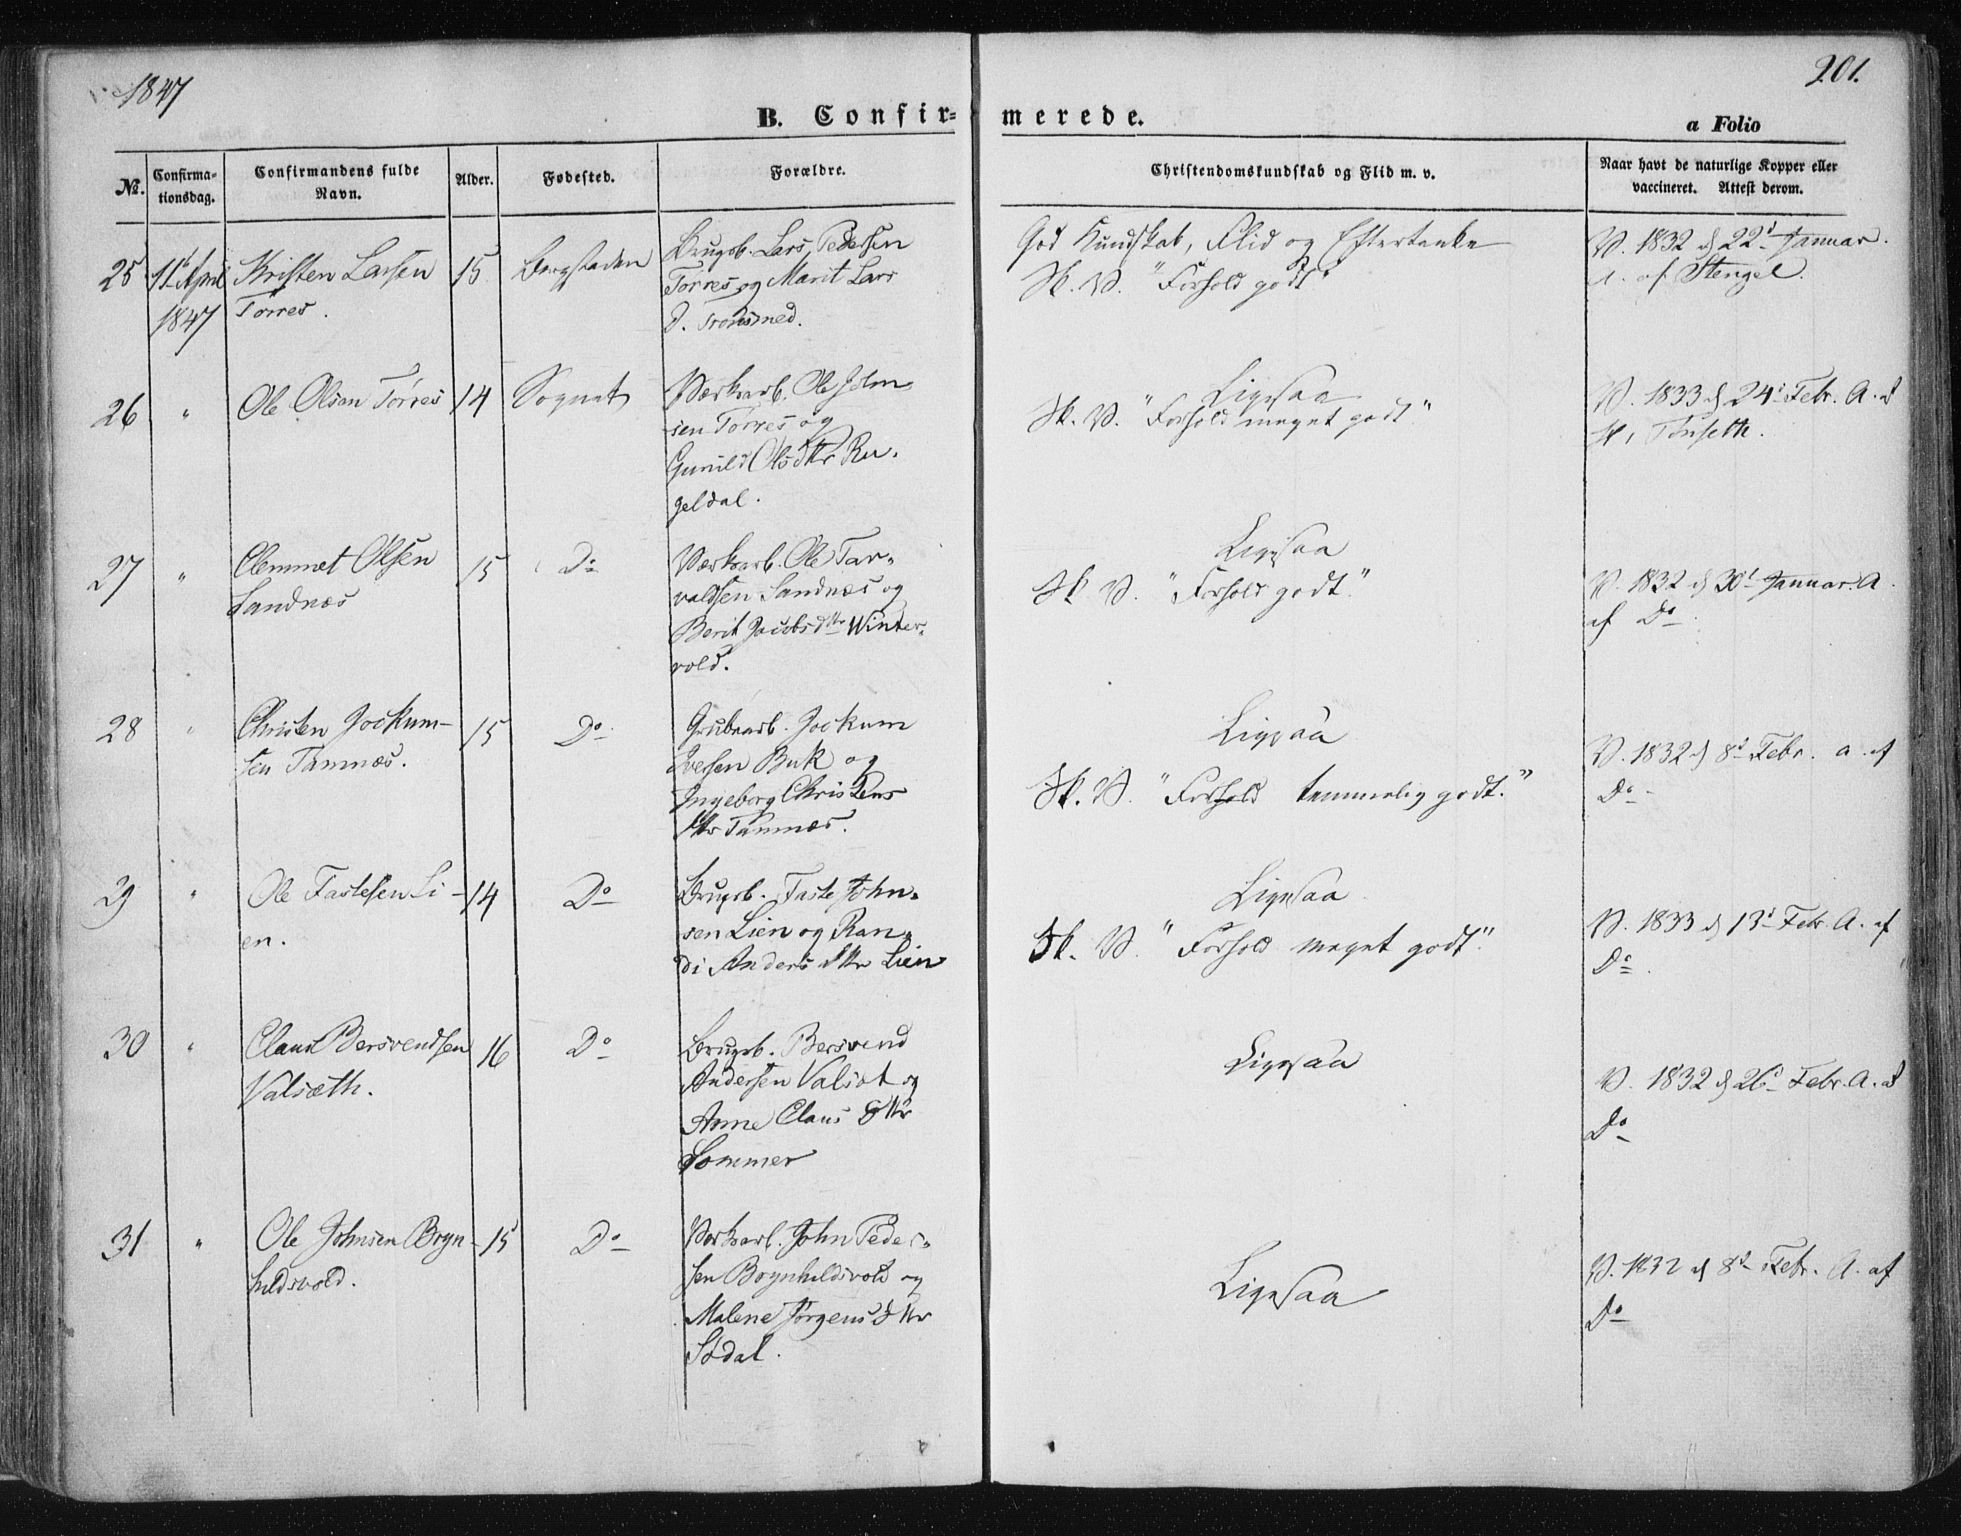 1847
201.
B. Confir-
merede.
a Folio
№.
Confirma-
tionsdag.
Confirmandens fulde
Navn.
Alder.
Fødested.
Forældre.
Christendomskundskab og Flid m. v.
Naar havt de naturlige Kopper eller
vaccineret. Attest derom.
25
11te April
1847
Kristen Larsen
Tørres.
15
Bergstaden
Brugsb. Lars Pedersen
Tørres og Marit Lars
D. Tronsmed.
God Kundskab, Flid og Eftertanke
Sk. V. "Forhold godt"
V. 1832 d 22d Januar.
A. af Stengel.
26
"
Ole Olsen Tørres
14
Sognet
Værksarb. Ole John
sen Tørres og
Gunild Olsdtr Ru-
geldal.
Ligesaa
Sk. V. "Forhold meget godt"
V. 1833 d 24d Febr. A. af
Tufseth.
27
"
Clemmet Olsen
Sandnæs
15
Do
Værksarb. Ole Tar-
valdsen Sandnæs og
Berit Jacobsdtr Winter-
vold.
Ligesaa
Sk. V. "Forhold godt."
V. 1832 d 30d Januar. A
af Do.
28
"
Christen Jockum-
sen Tamnæs.
15
Do
Grubearb. Jockum
Iversen Buk og
Ingeborg Christens
dtr Tamnæs.
Ligesaa
Sk. V. "Forhold temmelig godt."
V. 1832 d 8d Febr. a. af
Do
29
"
Ole Fastesen Li-
en.
14
Do
Brugsb. Faste John-
sen Lien og Ran-
di Anders dtr Lien
Ligesaa
Sk. V. "Forhold meget godt".
V. 1833 d 13d Febr. A. af
Do.
30
"
Claus Bersvendsen
Valsæth.
16
Do
Brugsb. Bersvend
Andersen Valset og
Anne Claus dtr
Sommer
Ligesaa
V. 1832 d 26d Febr. A. af
Do
31
"
Ole Johnsen Bryn-
hildsvold.
15
Do
Værksarb. John Peder-
sen Brynhildsvold og
Malene Jørgens dtr
Sødal.
Ligesaa
V. 1832 d 8d Febr. A. af
Do